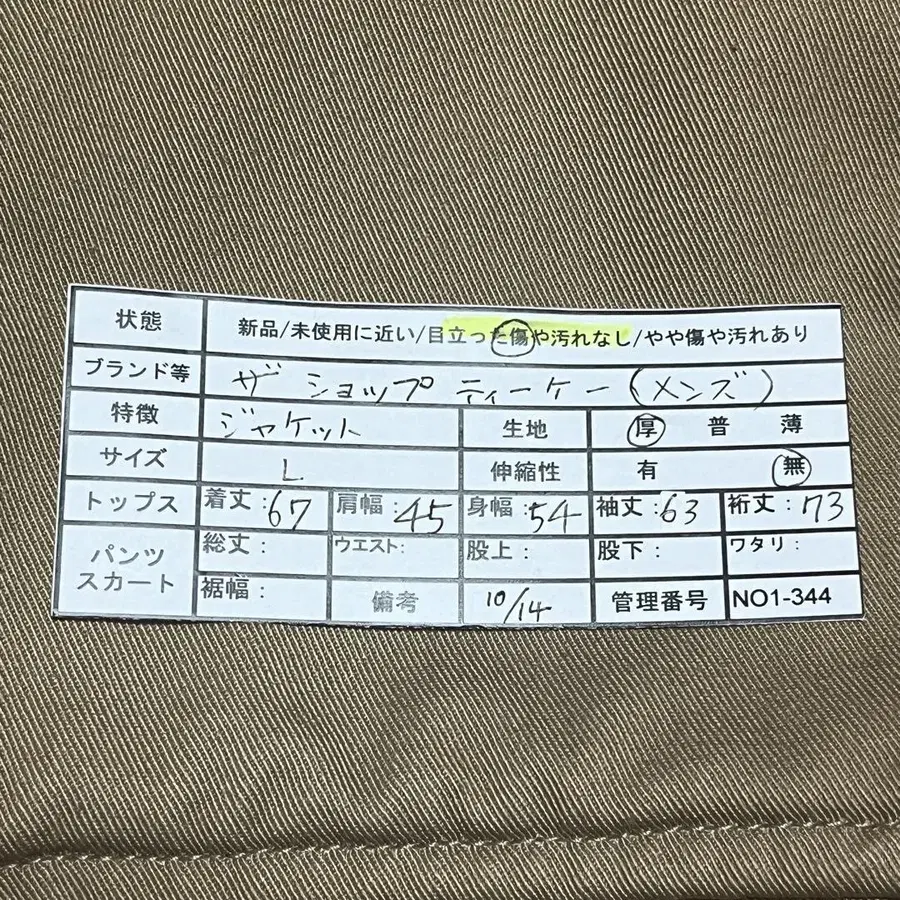 状態 新品/未使用に近い/目立った傷や汚れなし/やや傷や汚れあり
ブランド等 ザ ショップ ティーケー(メンズ)
特徴 ジャケット 生地 厚 普 薄
サイズ L 伸縮性 有 無
トップス 着丈:67 肩幅:45 身幅:54 袖丈:63 裄丈:73
パンツ スカート 総丈: ウエスト: 股上: 股下: ワタリ:
裾幅: 備考 10/14 管理番号 NO1-344